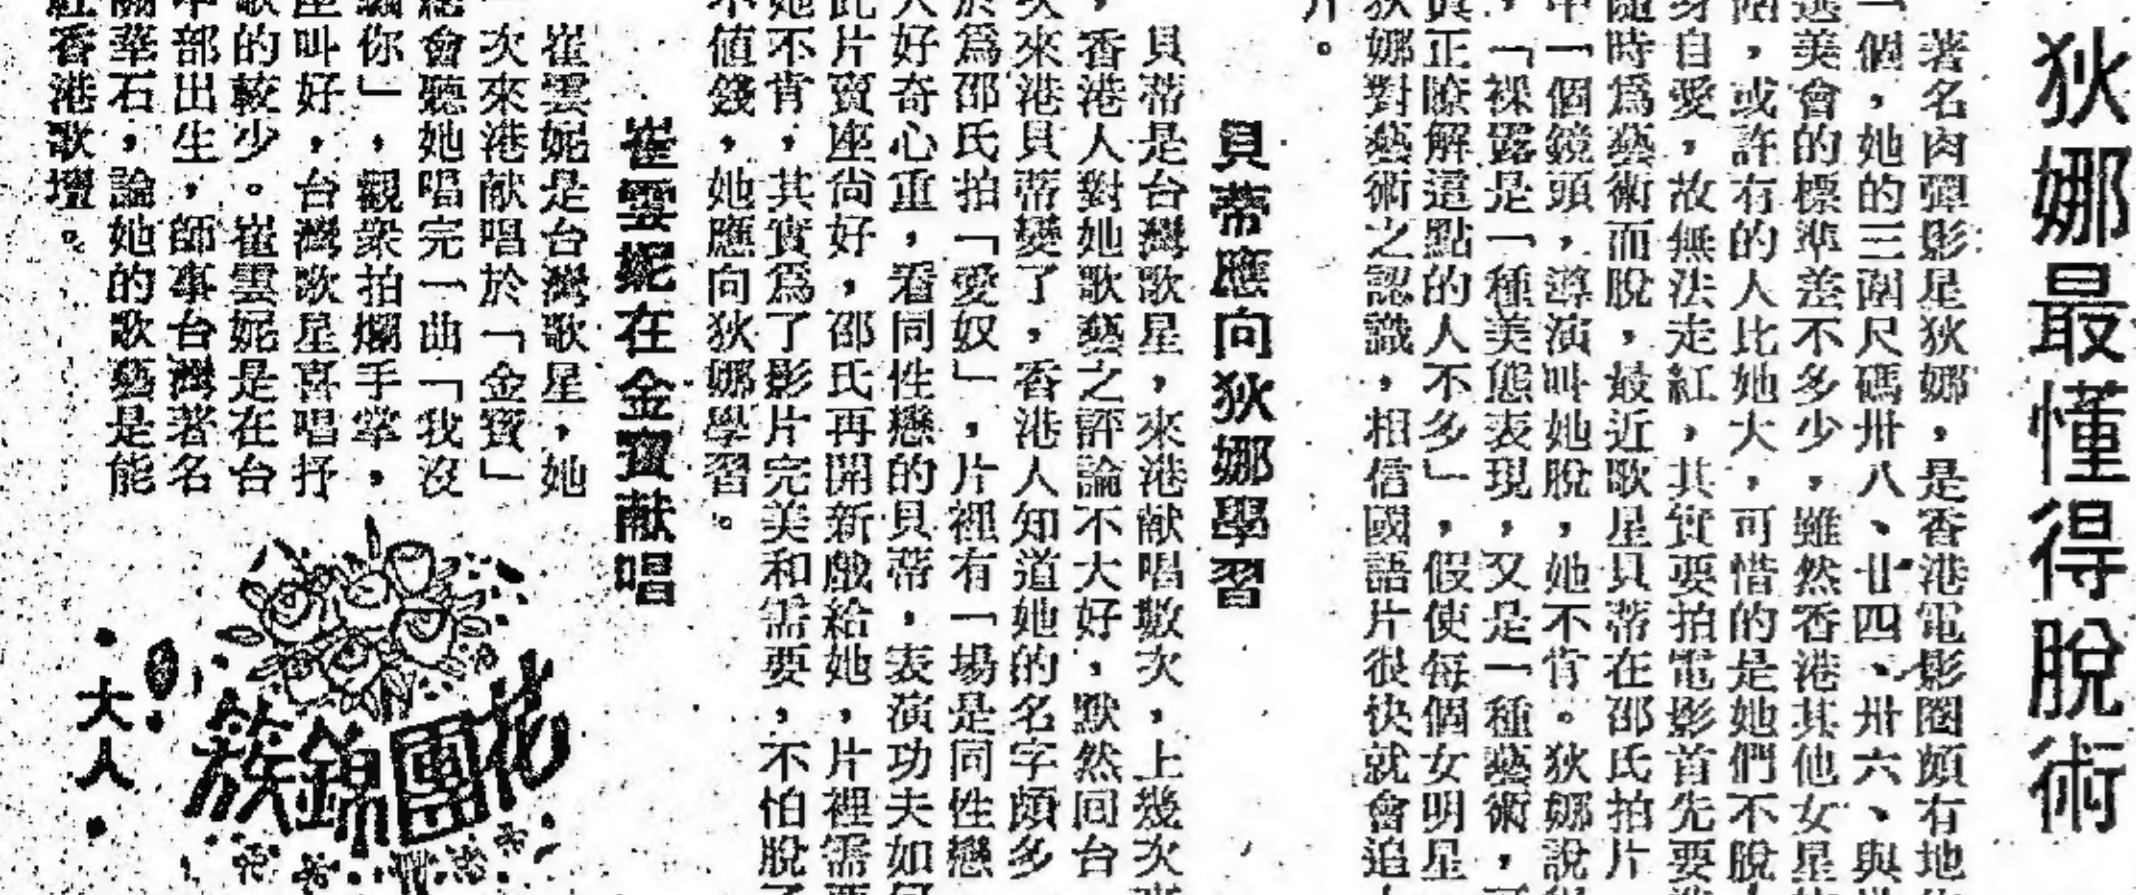 狄娜最懂得脫術
著名肉彈影星是狄娜，是香港電影圈頗有地
一個，她的三圍尺碼卅八、廿四、卅六、與
選美會的標準差不多少，雖然香港其他女星
，或許有的人比她大，可惜的是她們不脫
身自愛，故無法走紅，其實要拍電影首先要
隨時爲藝術而脫，最近歌星貝蒂在邵氏拍片
中一個鏡頭，導演叫她脫，她不肯。狄娜說
，「裸露是一種美態表現，又是一種藝術，
眞正瞭解這點的人不多」，假使每個女明星
狄娜對藝術之認識，相信國語片很快就會追
片。
貝蒂應向狄娜學習
貝蒂是台灣歌星，來港献唱數次，上幾次
，香港人對她歌藝之評論不大好，默然回台
次來港貝蒂變了，香港人知道她的名字頗多
於爲邵氏拍「愛奴」，片裡有一場是同性戀
人好奇心重，看同性戀的貝蒂，表演功夫如何
此片賣座尙好，邵氏再開新戲給她，片裡需要
她不肯，其實爲了影片完美和需要，不怕脫了
不值錢，她應向狄娜學習。
崔雲妮在金寶献唱
崔雲妮是台灣歌星，她
一次來港献唱於「金寶」
總會聽她唱完一曲「我沒
騙你」，觀衆拍爛手掌，
座叫好，台灣歌星喜唱抒
歌的較少。崔雲妮是在台
中部出生，師事台灣著名
關華石，論她的歌藝是能
紅香港歌壇。
花團錦簇
・大人・